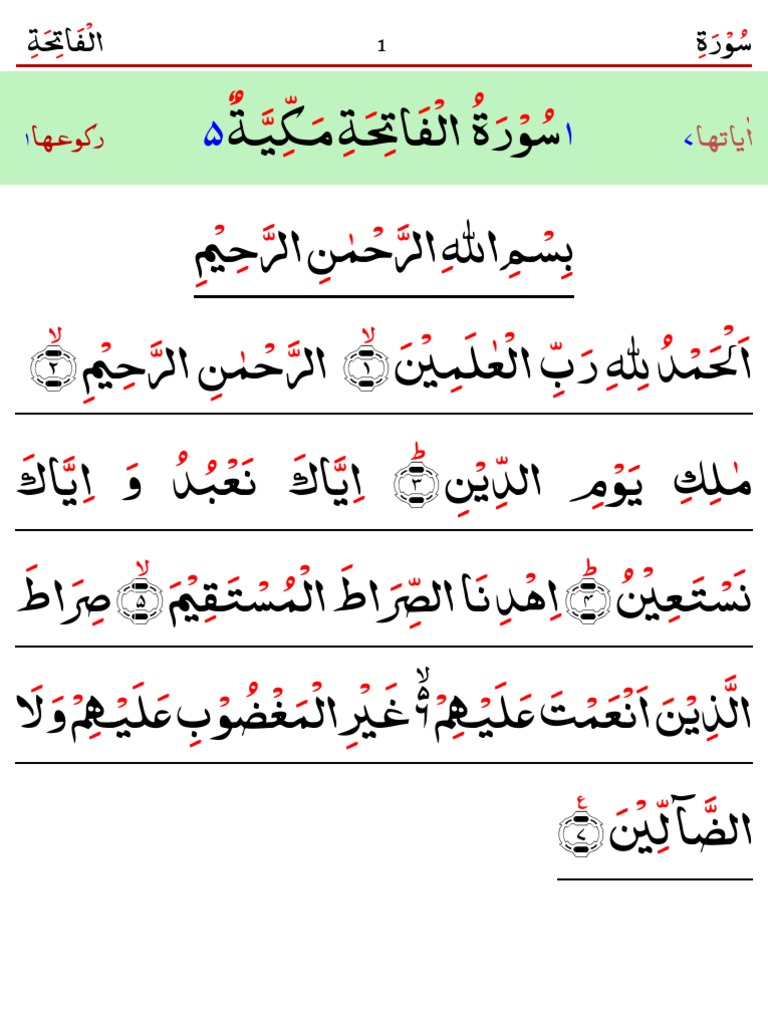 سُوْرَةِ 1 الْفَاتِحَةِ
اٰیاتها ۷ ۱ سُوْرَةُ الْفَاتِحَةِ مَكِّیَّةٌ ۵ رکوعها ۱
بِسْمِ اللهِ الرَّحْمٰنِ الرَّحِیْمِ
اَلْحَمْدُ لِلهِ رَبِّ الْعٰلَمِیْنَ ۙ﴿۱﴾ الرَّحْمٰنِ الرَّحِیْمِ ۙ﴿۲﴾
مٰلِكِ یَوْمِ الدِّیْنِ ؕ﴿۳﴾ اِیَّاكَ نَعْبُدُ وَ اِیَّاكَ
نَسْتَعِیْنُ ؕ﴿۴﴾ اِهْدِنَا الصِّرَاطَ الْمُسْتَقِیْمَ ۙ﴿۵﴾ صِرَاطَ
الَّذِیْنَ اَنْعَمْتَ عَلَیْهِمْ ۙ۬ۦ غَیْرِ الْمَغْضُوْبِ عَلَیْهِمْ وَلَا
الضَّآلِّیْنَ ﴿۷﴾ ع